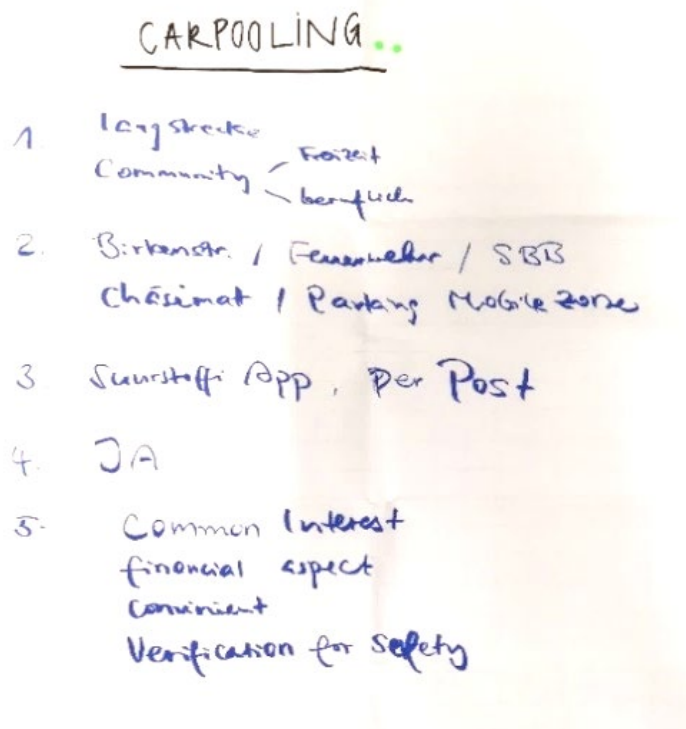 CARPOOLING..
1. Langstrecke
Community Freizeit
beruflich
2. Birkenstr. / Feuerwehr / SBB
Chäsimat / Parking Mobilezone
3 Suurstoffi App, per Post
4. JA
5. Common Interest
financial aspect
Convinient
Verification for Safety